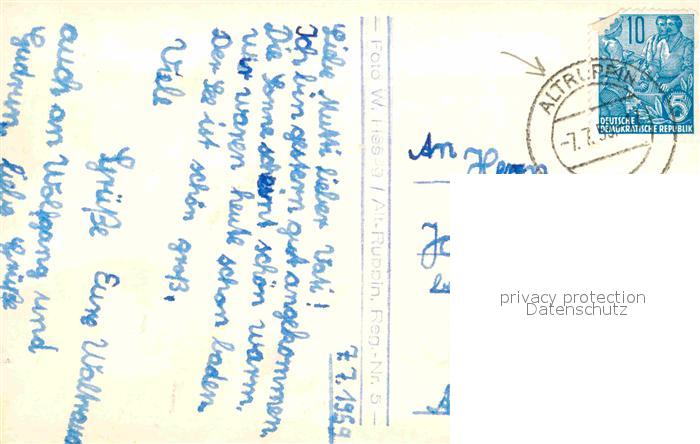 7.7.1959
Liebe Mutti lieber Vati!
Ich bin gestern gut angekommen.
Die Sonne scheint schön warm,
wir waren heute schon baden.
Der See ist schön groß,
Viele
Grüße Eure Waltraud
auch an Wolfgang und
Gudrun, liebe Grüße
— Foto W. / Alt-Ruppin, Reg.-Nr. 5 —
10
5
DEUTSCHE
DEMOKRATISCHE REPUBLIK
ALTRUPPIN
-7.7.
An Herrn
privacy protection
Datenschutz